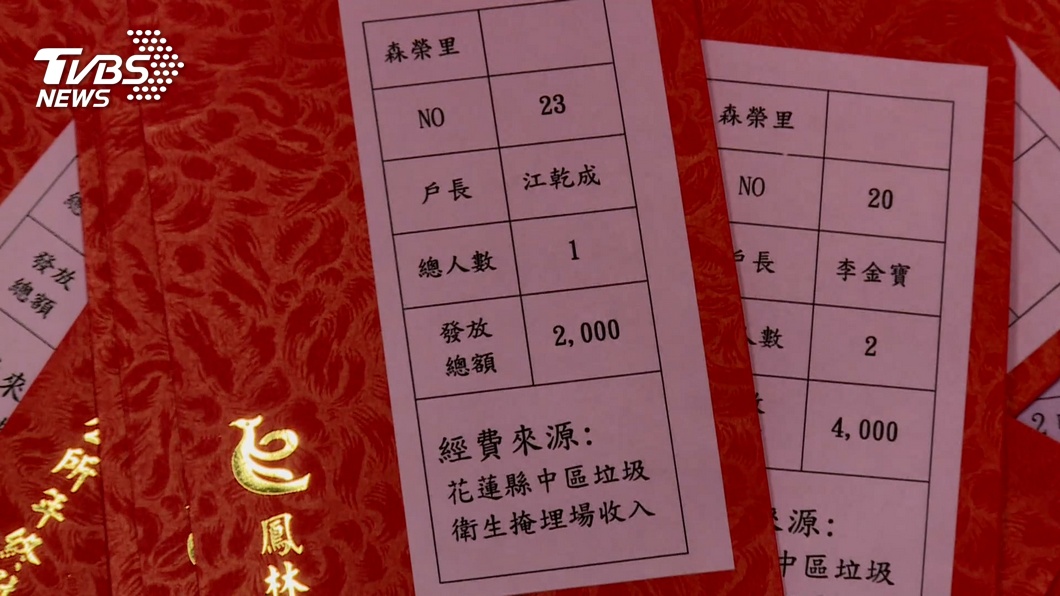 TVBS
NEWS
森榮里
NO 23
戶長 江乾成
總人數 1
發放
總額 2,000
經費來源：
花蓮縣中區垃圾
衛生掩埋場收入
森榮里
NO 20
戶長 李金寶
人數 2
4,000
來源：
中區垃圾
總
發放
總額
來
鳳林
公所
年
敬